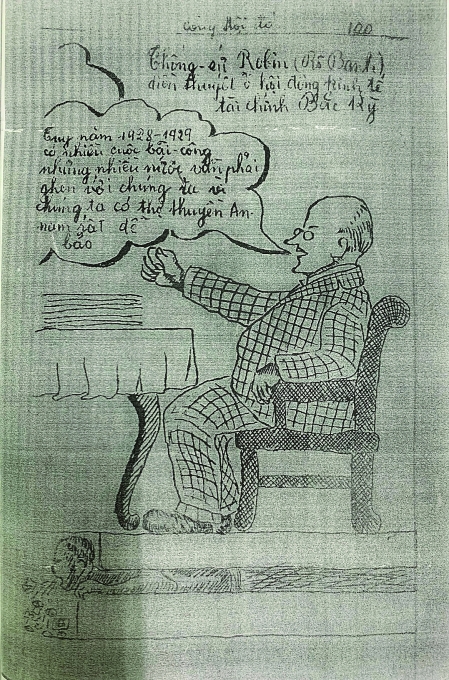 Công Hội đỏ 120
Thống-sứ Robin (Rô Banh)
diễn thuyết ở hội đồng kinh tế
tài chính Bắc Kỳ
Tuy năm 1928-1929
có nhiều cuộc bãi-công
nhưng nhiều nước vẫn phải
ghen với chúng ta vì
chúng ta có thợ thuyền An-
nam rất dễ
bảo